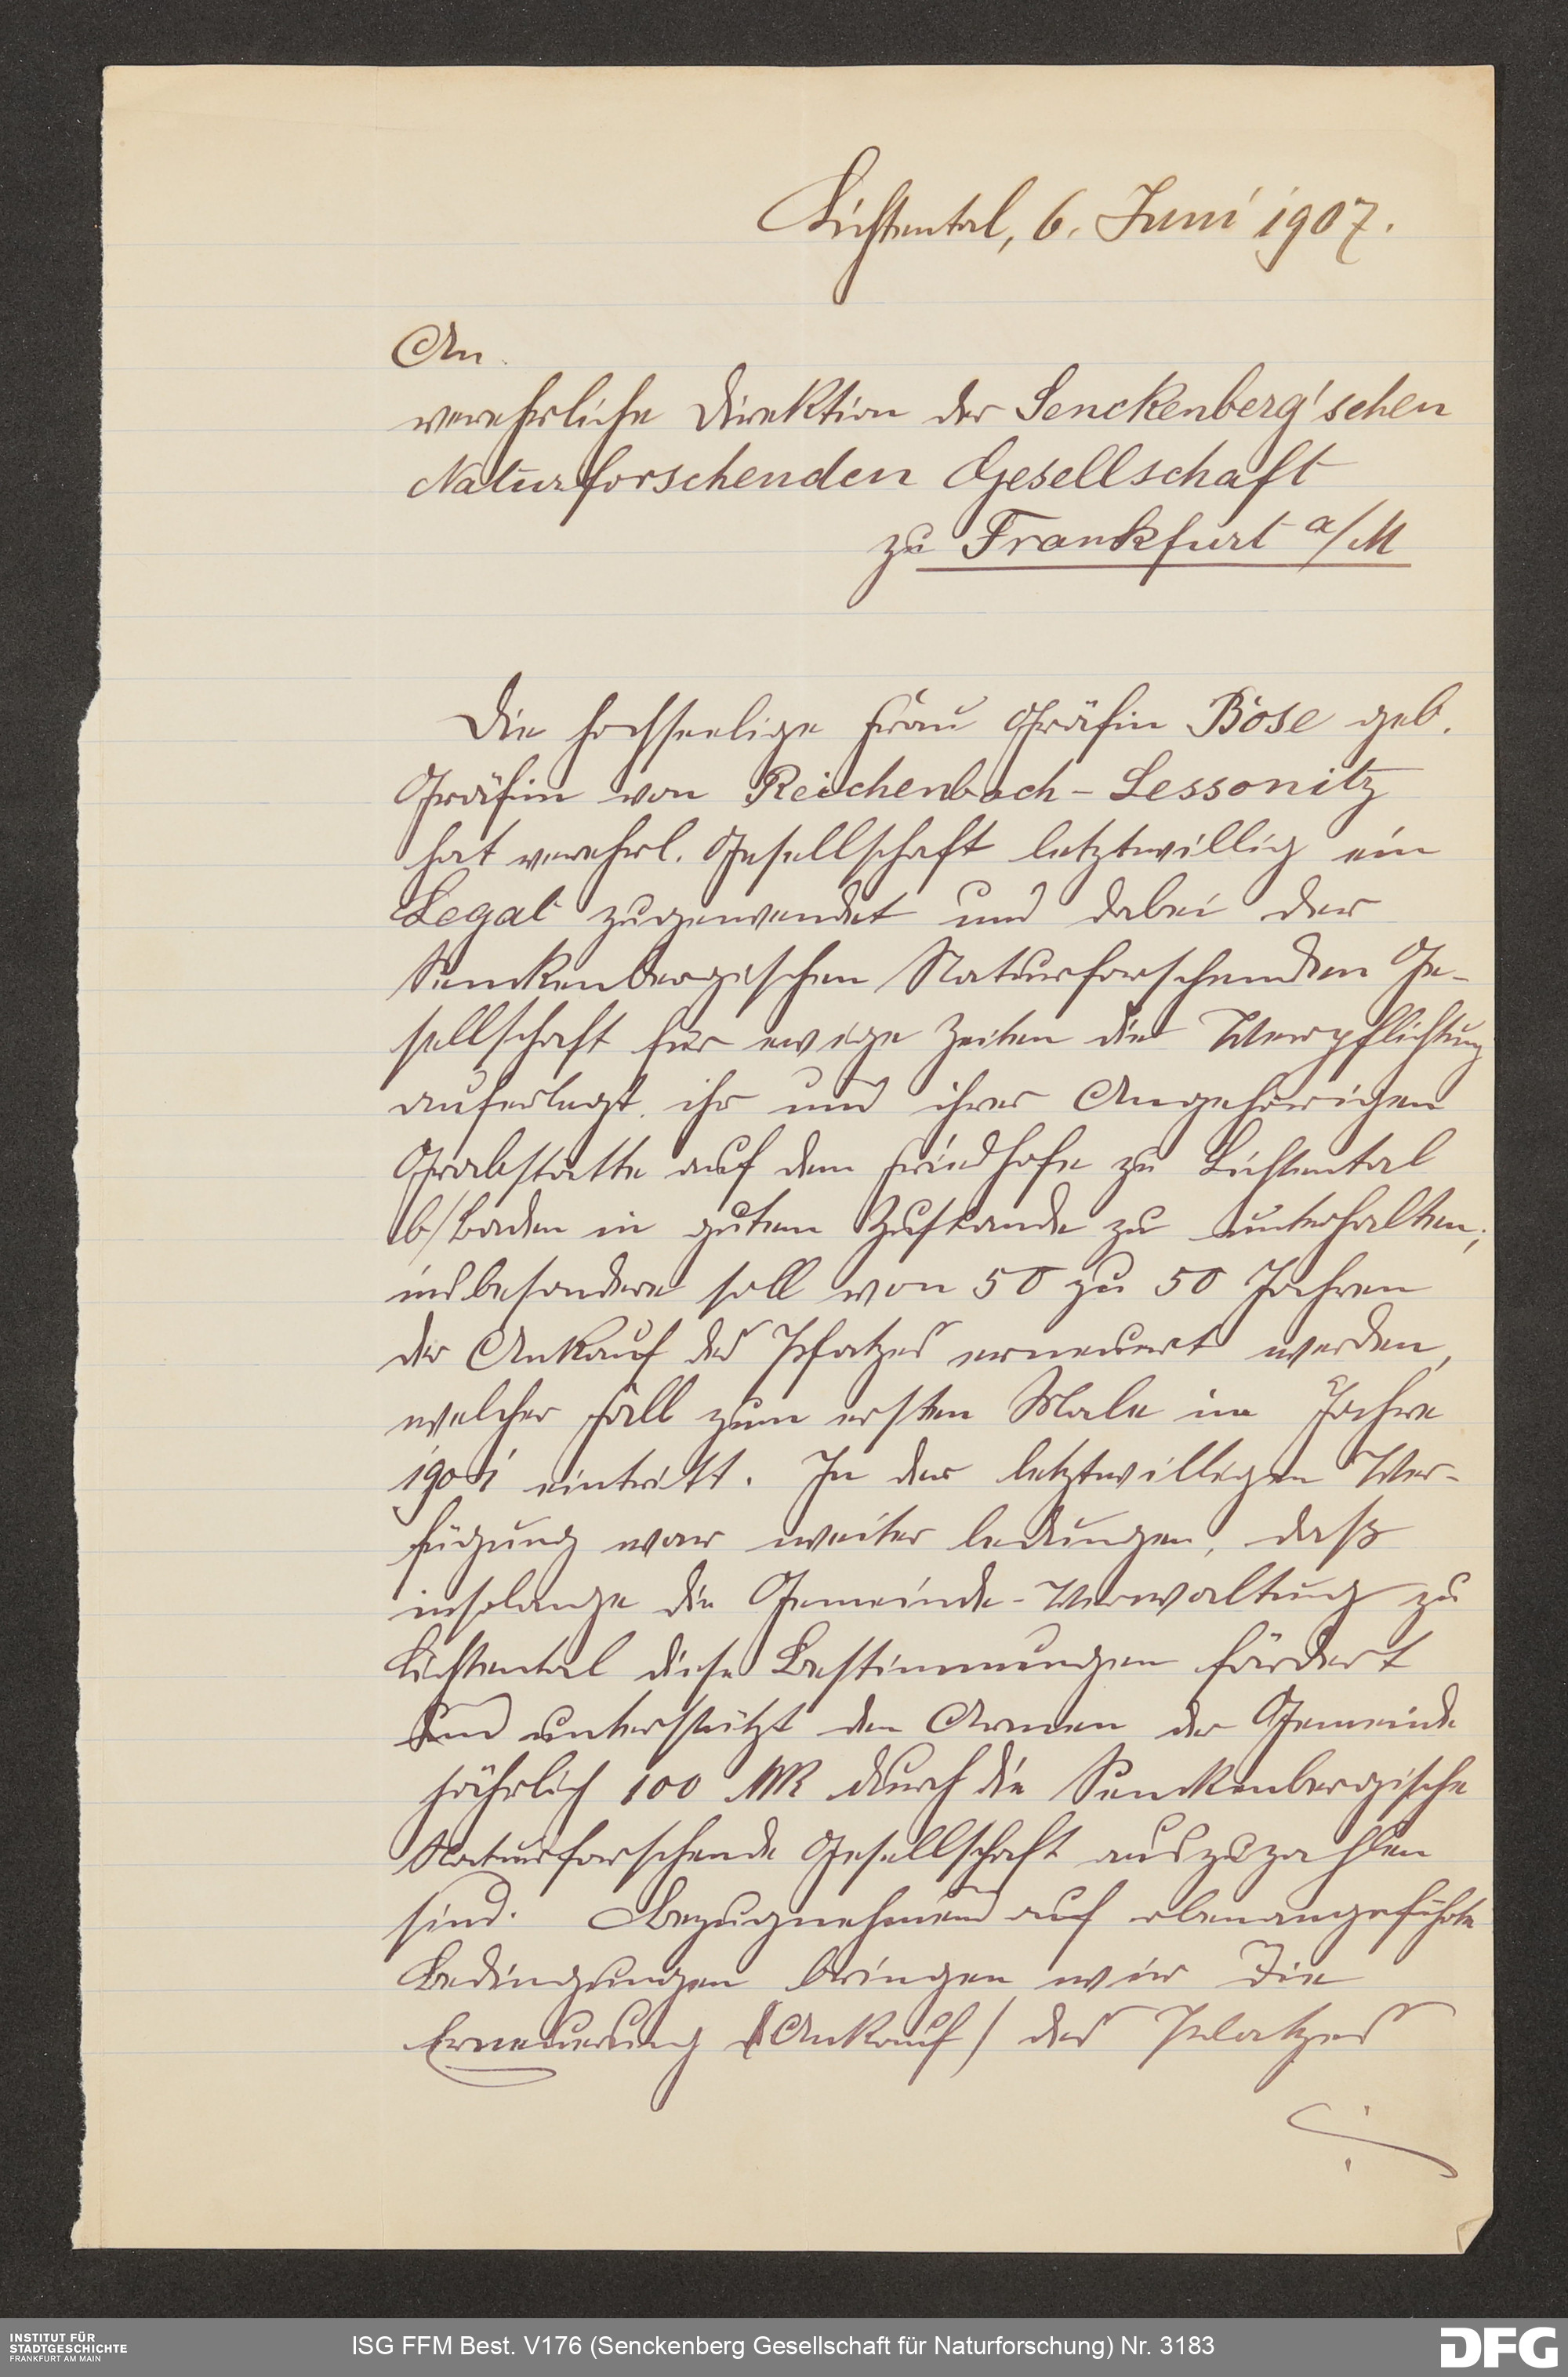 Lichtental, 6. Juni 1907.
An
verehrliche Direktion der Senckenberg'schen
Naturforschenden Gesellschaft
zu Frankfurt a/M
Die hochseelige Frau Gräfin Bose geb.
Gräfin von Reichenbach-Lessonitz
hat verehrl. Gesellschaft letztwillig ein
Legat zugewendet und dabei der
Senckenbergischen Naturforschenden Ge-
sellschaft für ewige Zeiten die Verpflichtung
auferlegt, ihr und ihrer Angehörigen
Grabstätte auf dem Friedhofe zu Lichtental
b/Baden in gutem Zustande zu unterhalten;
insbesondere soll von 50 zu 50 Jahren
der Ankauf des Platzes erneuert werden,
welcher Fall zum ersten Male im Jahre
1901 eintritt. In der letztwilligen Ver-
fügung war weiter bedungen, daß
insolange die Gemeinde-Verwaltung zu
Lichtental diese Bestimmungen fördert
und unterstützt den Armen der Gemeinde
jährlich 100 Mk durch die Senckenbergische
Naturforschende Gesellschaft auszuzahlen
sind. Bezugnehmend auf obenangeführte
Bedingungen bringen wir die
Erneuerung (Ankauf) des Platzes
INSTITUT FÜR
STADTGESCHICHTE
FRANKFURT AM MAIN
ISG FFM Best. V176 (Senckenberg Gesellschaft für Naturforschung) Nr. 3183
DFG